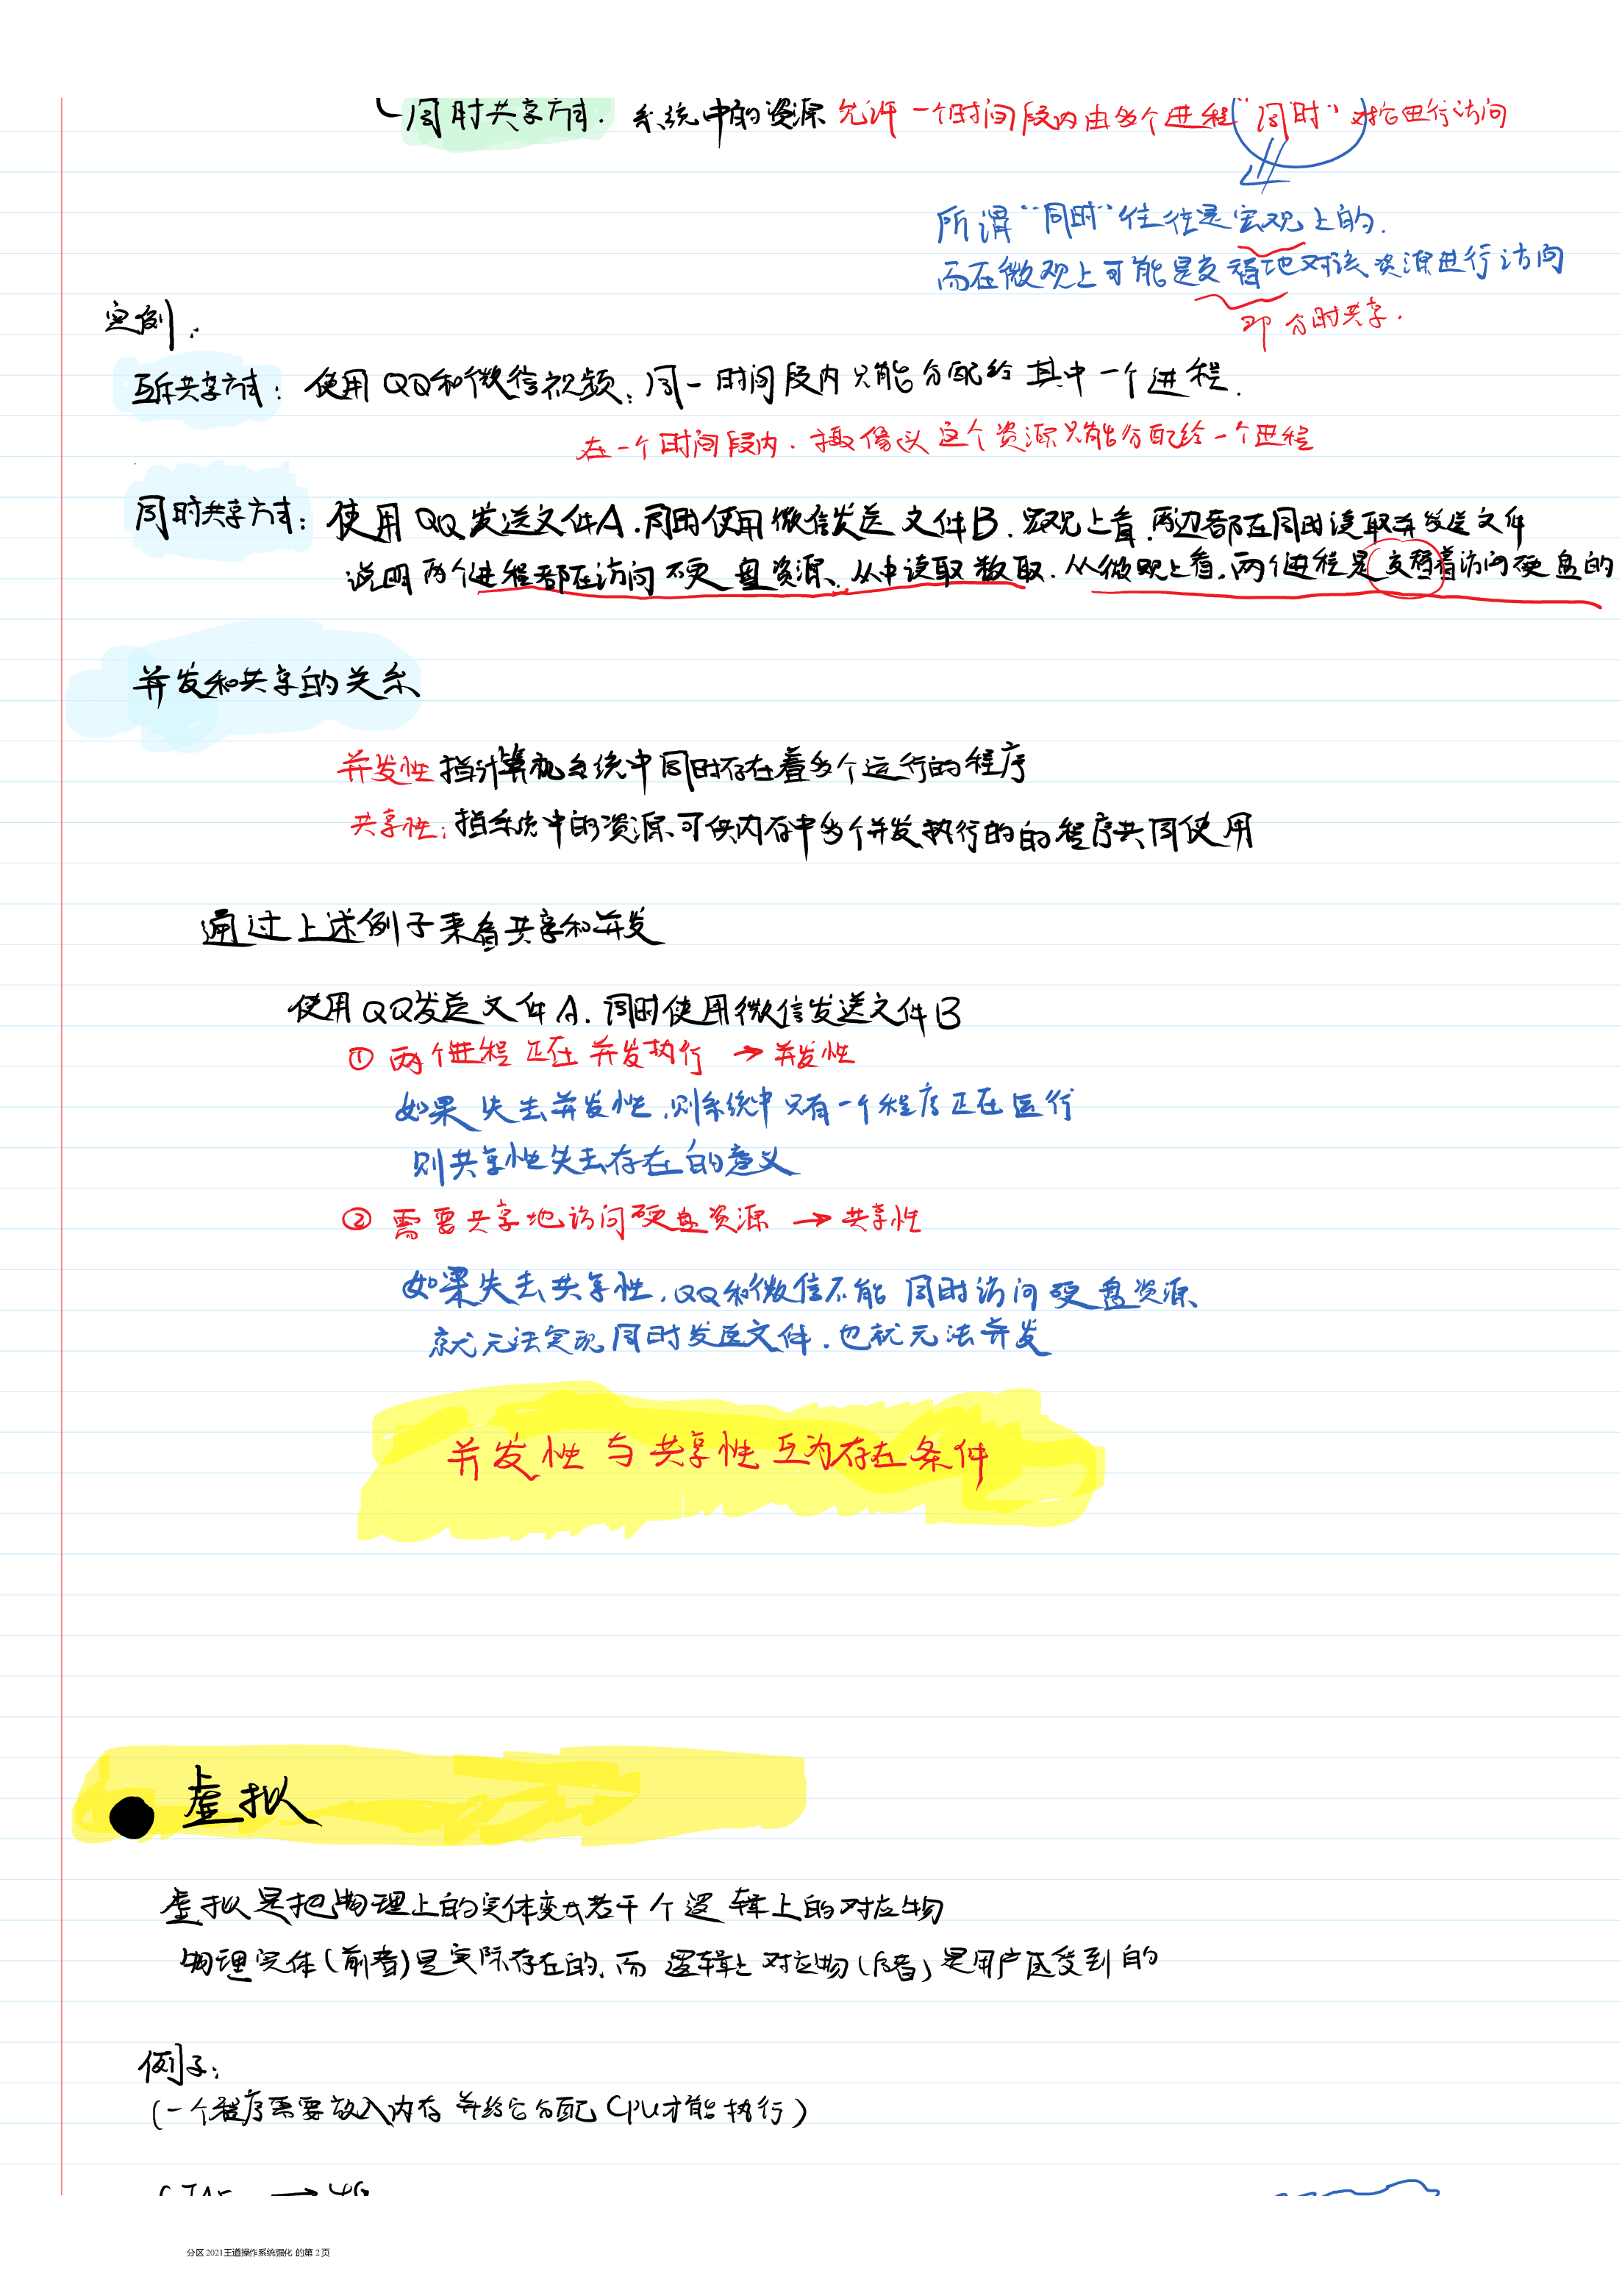 同时共享方式. 系统中的资源 允许一个时间段内由多个进程“同时”对它进行访问
所谓“同时”往往是宏观上的.
而在微观上可能是交替地对该资源进行访问
即分时共享.
实例:
互斥共享方式: 使用QQ和微信视频, 同一时间段内只能分配给其中一个进程.
在一个时间段内. 摄像头这个资源只能分配给一个进程
同时共享方式: 使用QQ发送文件A.同时使用微信发送文件B. 宏观上看.两边都在同时读取并发送文件
说明两个进程都在访问硬盘资源、从中读取数取. 从微观上看,两个进程是交替着访问硬盘的
并发和共享的关系
并发性 指计算机系统中同时存在着多个运行的程序
共享性: 指系统中的资源可供内存中多个并发执行的的程序共同使用
通过上述例子来看共享和并发
使用QQ发送文件A.同时使用微信发送文件B
① 两个进程正在并发执行 → 并发性
如果失去并发性,则系统中只有一个程序正在运行
则共享性失去存在的意义
② 需要共享地访问硬盘资源 → 共享性
如果失去共享性, QQ和微信不能同时访问硬盘资源
就无法实现同时发送文件.也就无法并发
并发性与共享性互为存在条件
虚拟
虚拟是把物理上的实体变成若干个逻辑上的对应物
物理实体(前者)是实际存在的,而逻辑上对应物(后者)是用户感受到的
例子:
(一个程序需要放入内存并给它分配CPU才能执行)
分区 2021王道操作系统强化 的第 2 页